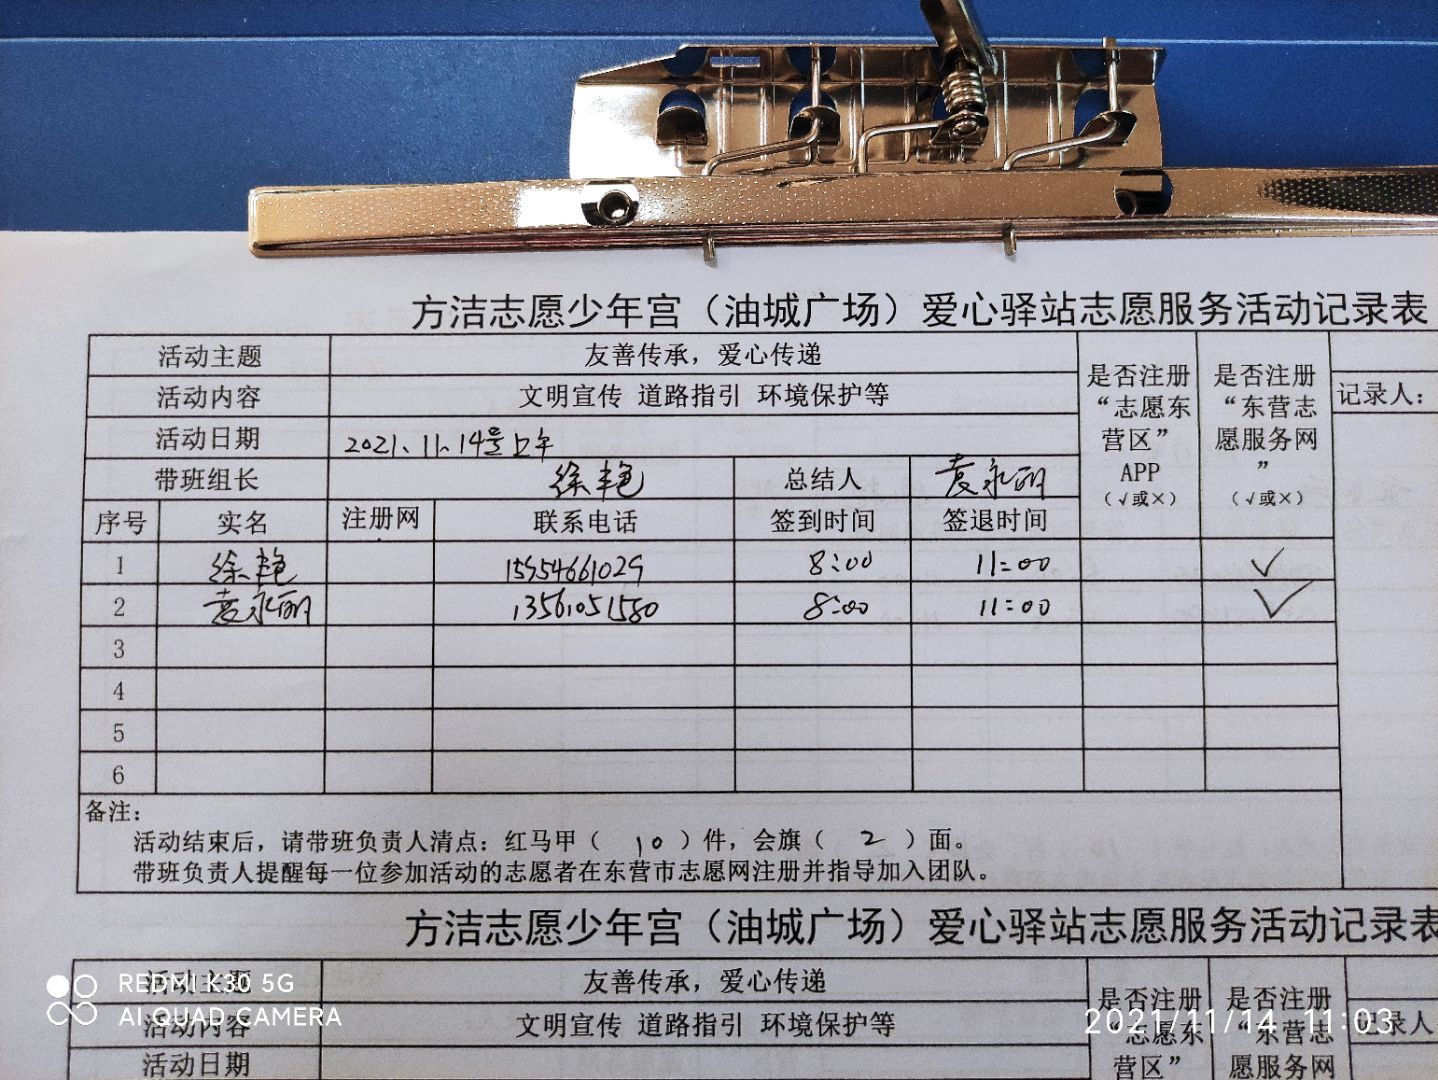 方洁志愿少年宫（油城广场）爱心驿站志愿服务活动记录表
活动主题 友善传承，爱心传递
活动内容 文明宣传 道路指引 环境保护等
活动日期 2021、11、14号上午
带班组长 徐艳 总结人 袁永丽
是否注册“志愿东营区”APP（√或×）
是否注册“东营志愿服务网”（√或×）
记录人：
序号 实名 注册网 联系电话 签到时间 签退时间
1 徐艳 15954661029 8:00 11:00 ✓
2 袁永丽 13561051580 8:00 11:00 ✓
3
4
5
6
备注：
活动结束后，请带班负责人清点：红马甲（ 10 ）件，会旗（ 2 ）面。
带班负责人提醒每一位参加活动的志愿者在东营市志愿网注册并指导加入团队。
方洁志愿少年宫（油城广场）爱心驿站志愿服务活动记录表
活动主题 友善传承，爱心传递
活动内容 文明宣传 道路指引 环境保护等
活动日期
是否注册“志愿东营区”
是否注册“东营志愿服务网
记录人
REDMI K30 5G
AI QUAD CAMERA
2021/11/14 11:03